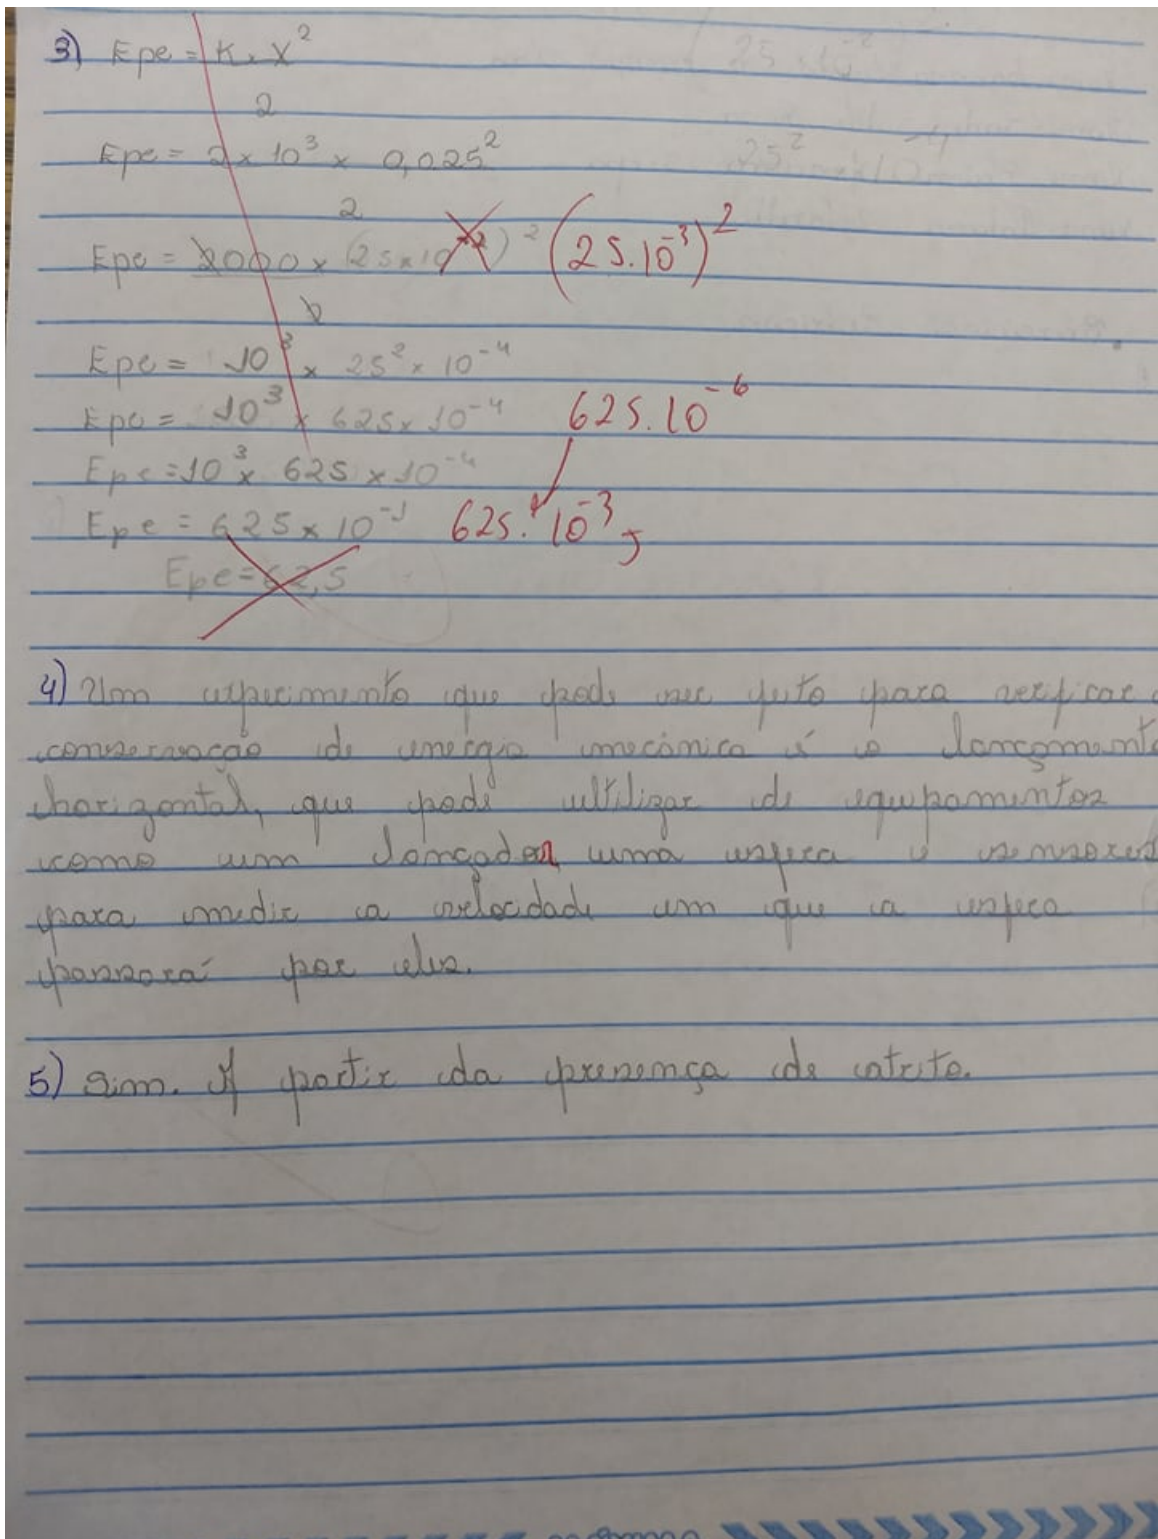 3) Epe = K. X²
2
Epe = 2 x 10³ x 0,025²
2
Epe = 2000 x (25 x 10⁻²)² (25.10⁻³)²
2
Epe = 10³ x 25² x 10⁻⁴
Epe = 10³ x 625 x 10⁻⁴ 625.10⁻⁶
Epe = 10³ x 625 x 10⁻⁴
Epe = 625 x 10⁻¹ 625.10⁻³ J
Epe = 62,5
4) Um experimento que pode ser feito para verificar a
conservação de energia mecânica é o lançamento
horizontal, que pode ultilizar de equipamentos
como um lançador uma esfera e sensores
para medir a velocidade em que a esfera
passará por eles.
5) Sim. A partir da presença de atrito.